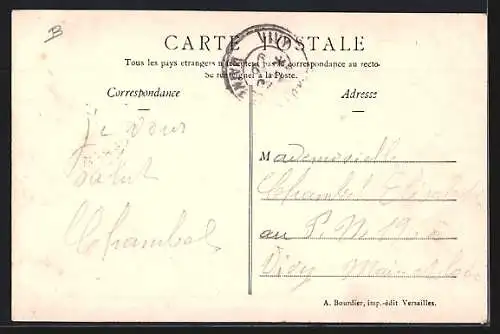 B
CARTE POSTALE
Tous les pays etrangers n'acceptent pas la correspondance au recto-
Se renseigner à la Poste.
Correspondance
Adresse
je vous
salut
Chambel
Mademoiselle
Chambel
au P. N 19
A. Bourdier, imp.-édit Versailles.